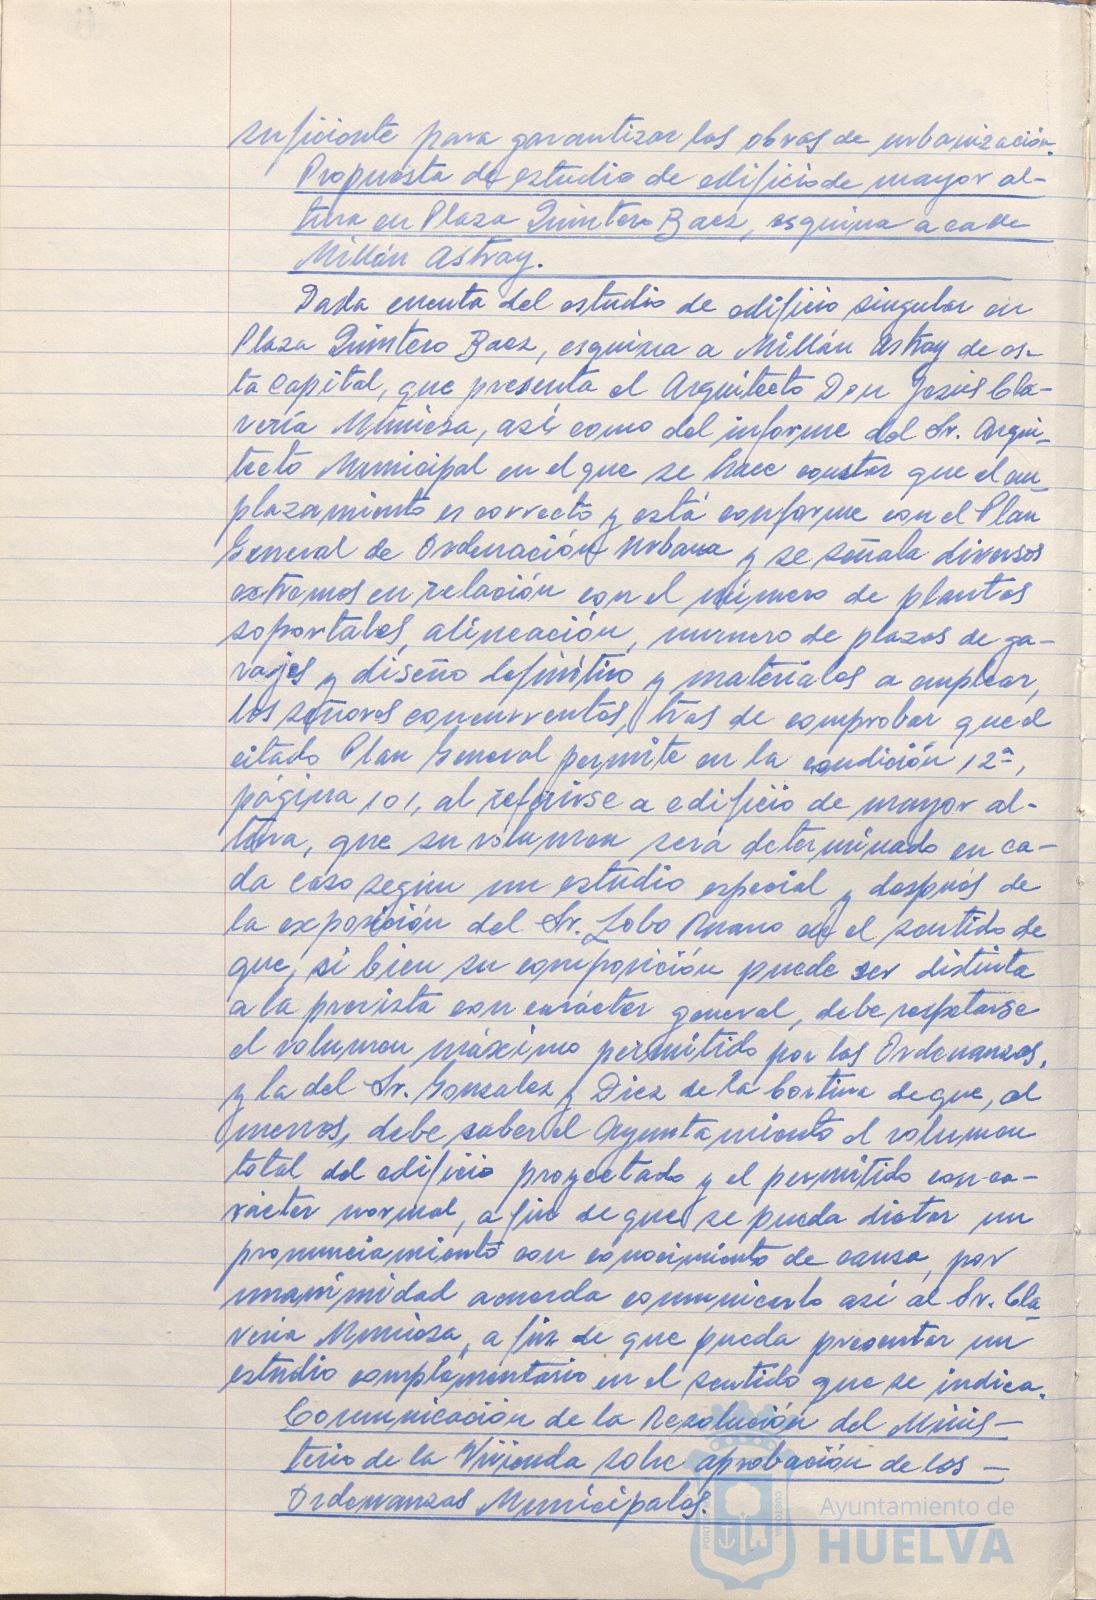 suficiente para garantizar las obras de urbanización.
Propuesta de estudio de edificio de mayor al-
tura en Plaza Quintero Baez, esquina a calle
Millán Astray.
Dada cuenta del estudio de edificio singular en
Plaza Quintero Baez, esquina a Millán Astray de es-
ta Capital, que presenta el Arquitecto Don Jesús Cla-
vería Municsa, así como del informe del Sr. Arqui-
tecto Municipal en el que se hace constar que el em-
plazamiento es correcto y está conforme con el Plan
General de Ordenación Urbana y se señala diversos
extremos en relación con el número de plantas
soportales, alineación, numero de plazas de ga-
rajes y diseño definitivo y materiales a emplear,
los señores concurrentes, tras de comprobar que el
citado Plan General permite en la condición 12ª,
página 101, al referirse a edificio de mayor al-
tura, que su volumen será determinado en ca-
da caso según un estudio especial y después de
la exposición del Sr. Lobo en el sentido de
que, si bien su composición puede ser distinta
a la prevista con carácter general, debe respetarse
el volumen máximo permitido por las Ordenanzas,
y la del Sr. Gonzalez y Diez de la Cortina de que, al
menos, debe saber el Ayuntamiento el volumen
total del edificio proyectado y el permitido con ca-
rácter normal, a fin de que se pueda dictar un
pronunciamiento con conocimiento de causa, por
unanimidad acuerda comunicarlo así al Sr. Cla-
veria Muniosa, a fin de que pueda presentar un
estudio complementario en el sentido que se indica.
Comunicación de la Resolución del Minis-
terio de la Vivienda sobre aprobación de las
Ordenanzas Municipales.
Ayuntamiento de
HUELVA